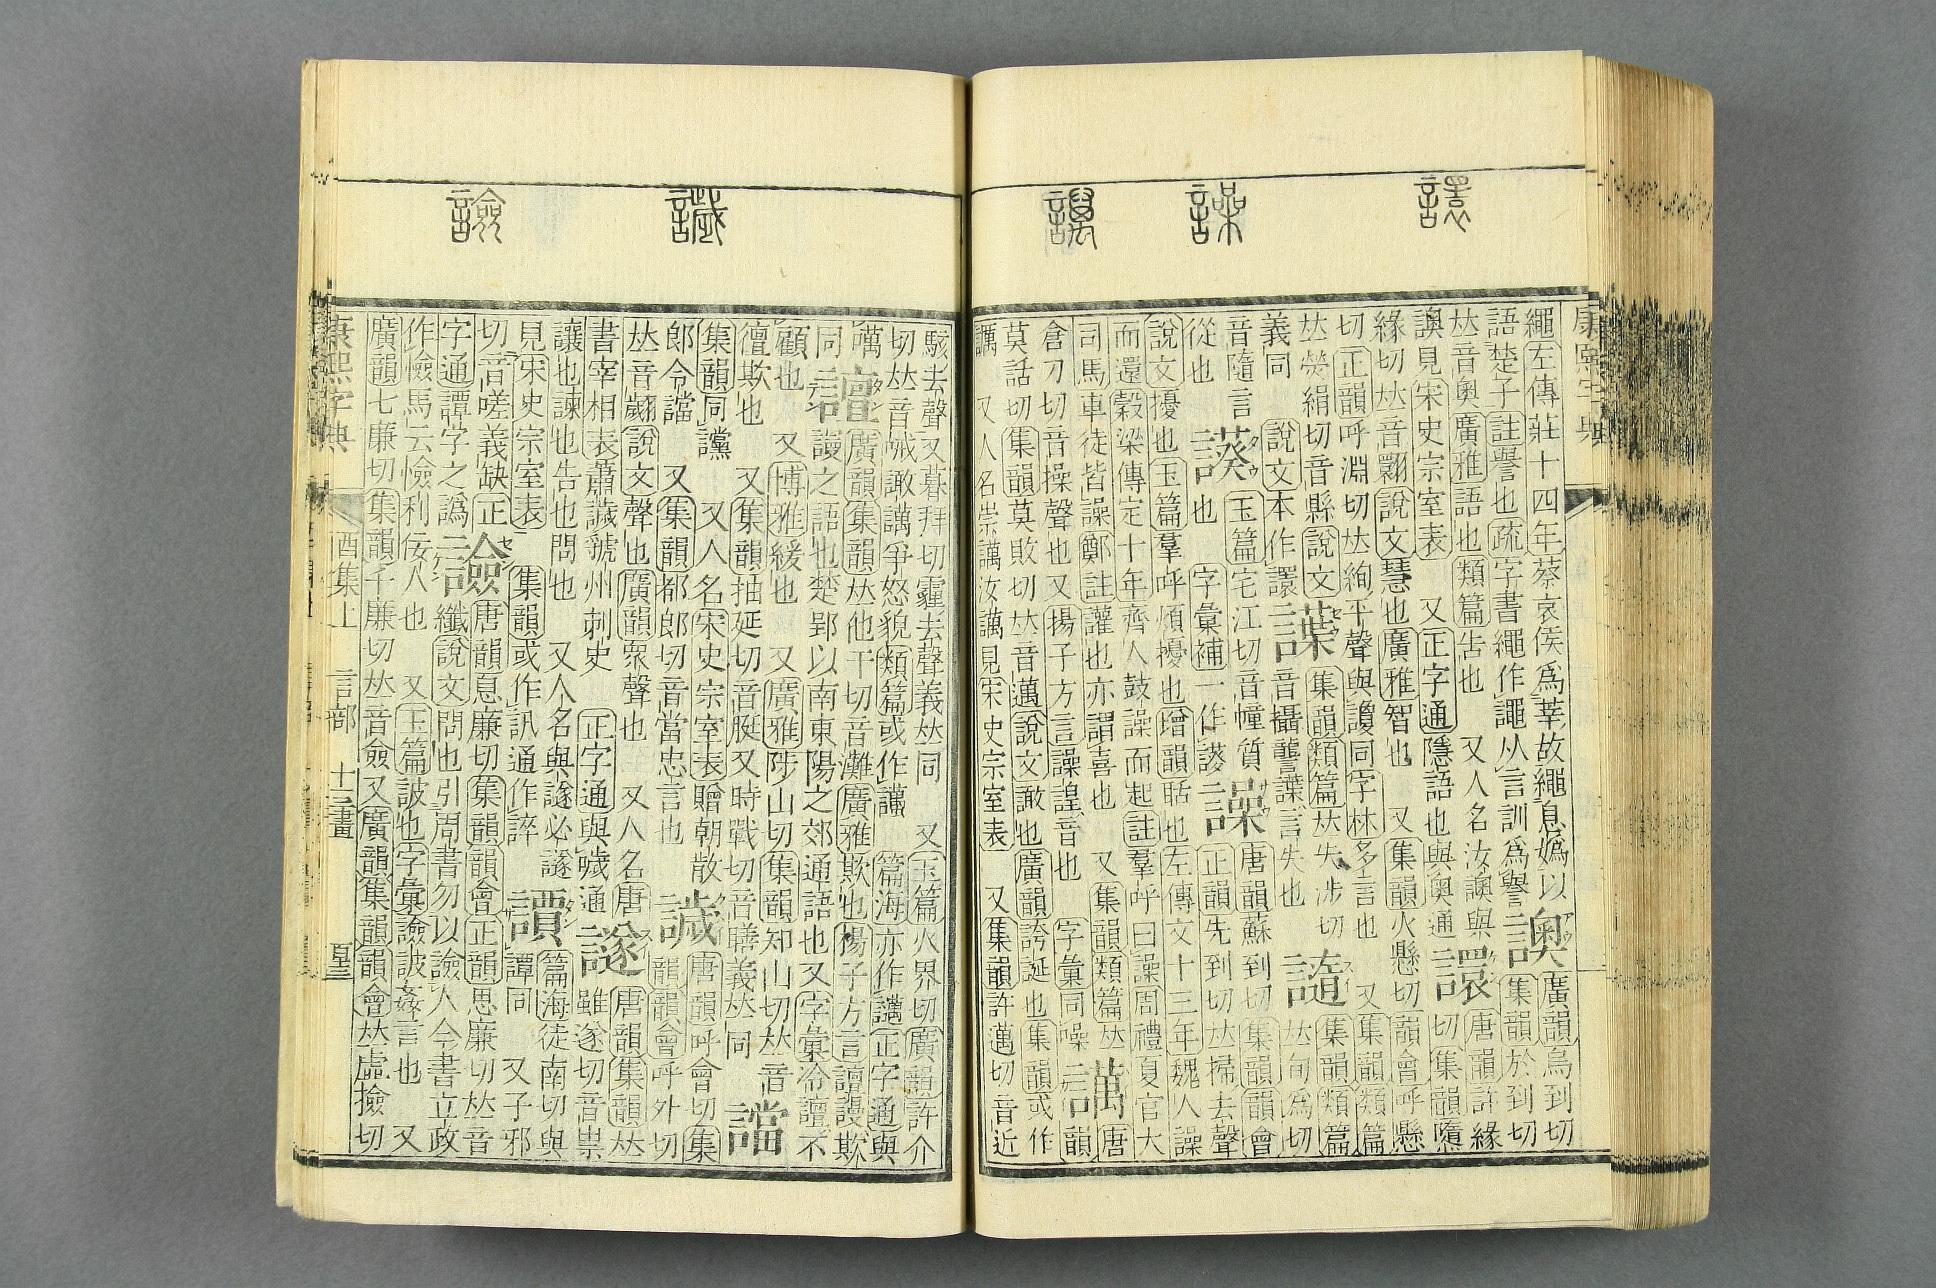 康熙字典
繩左傳莊十四年蔡哀侯爲莘故繩息嬀以
語楚子註譽也疏字書繩作譝从言訓爲譽
廣韻烏到切
集韻於到切
𠀤音奧廣雅語也類篇告也 又人名汝
見宋史宗室表 又正字通隱語也與奧通
譞
唐韻許緣
切集韻隳
緣切𠀤音翾說文慧也廣雅智也 又集韻火懸切韻會呼懸
切正韻呼淵切𠀤絢平聲與讂同字林多言也 又集韻類篇
𠀤熒絹切音縣說文
義同 說文本作
集韻類篇𠀤失涉切
音攝讋 言失也
集韻類篇
𠀤旬爲切
音隨言
從也
玉篇宅江切音幢質
也 字彙補一作
譟
唐韻蘇到切集韻韻會
正韻先到切𠀤掃去聲
說文擾也玉篇羣呼煩擾也增韻聒也左傳文十三年魏人譟
而還穀梁傳定十年齊人鼓譟而起註羣呼曰譟周禮夏官大
司馬車徒皆譟鄭註讙也亦謂喜也 又集韻類篇𠀤
倉刀切音操聲也又揚子方言譟諻音也 字彙同噪
譪
唐
韻
莫話切集韻莫敗切𠀤音邁說文譀也廣韻誇誕也集韻或作
又人名崇 汝 見宋史宗室表 又集韻許邁切音近
駭去聲又暮拜切霾去聲義𠀤同 又玉篇火界切廣韻許介
切𠀤音 譀 爭怒貌類篇或作 篇海亦作 正字通與
譠
廣韻集韻𠀤他干切音灘廣雅欺也揚子方言譠謾欺
謾之語也楚郢以南東陽之郊通語也又字彙冷譠不
顧也 又博雅緩也 又廣雅陟山切集韻知山切𠀤音
儃欺也 又集韻抽延切音脡又時戰切音膳義𠀤同
譡
集韻同讜 又人名宋史宗室表贈朝散
郎令譡 又集韻都郎切音當忠言也
唐韻呼會切集
韻韻會呼外切
𠀤音翽說文聲也廣韻衆聲也 又人名唐
書宰相表蕭 虢州刺史 正字通與 通
譢
唐韻集韻𠀤
雖遂切音祟
讓也諫也告也問也 又人名與譢必譢
見宋史宗室表 集韻或作訊通作誶
篇海徒南切與
譚同 又子邪
切音嗟義缺正
字通譚字之譌
譣
唐韻息廉切集韻韻會正韻思廉切𠀤音
纖說文問也引周書勿以譣人今書立政
作憸馬云憸利佞人也 又玉篇詖也字彙譣詖姦言也 又
廣韻七廉切集韻千廉切𠀤音僉又廣韻集韻韻會𠀤虛撿切
康熙字典
酉集上 言部 十三畫